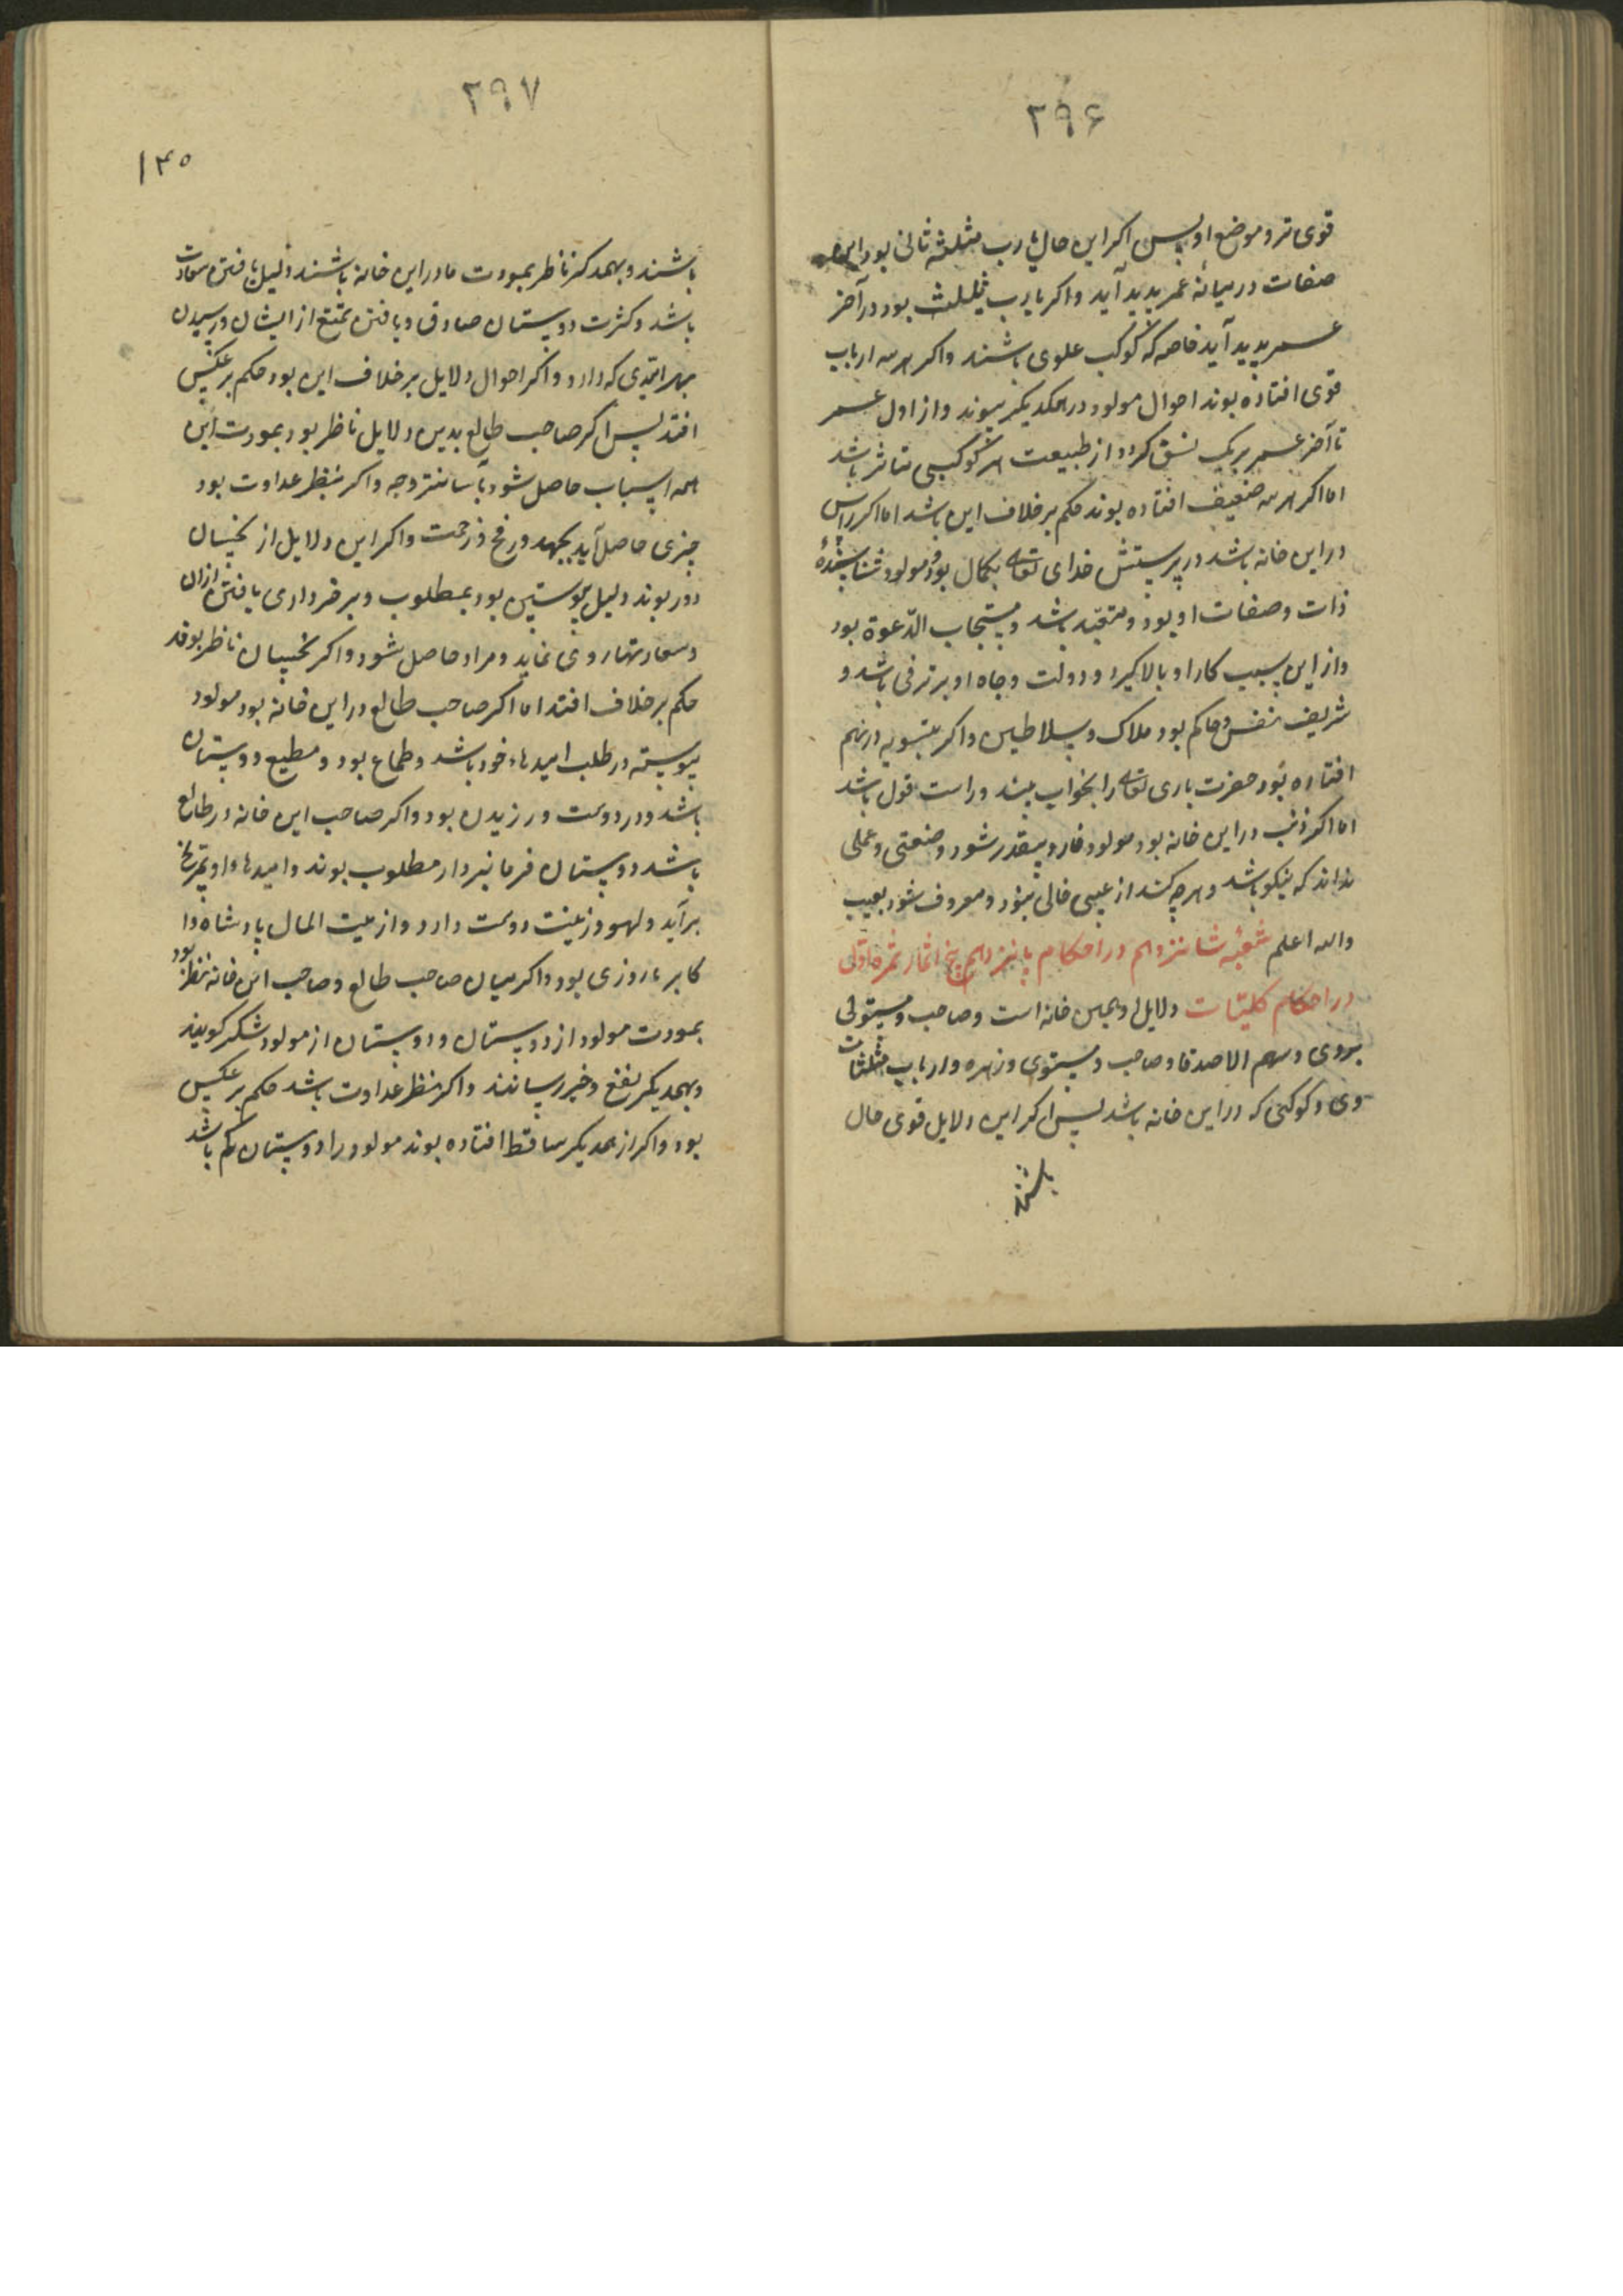 ۲۹۶
قوی تر و موضع او پس اکر این حال با رب مثلثه ثانی بود این
صفات در میانهٔ عمر پدید آید و اکر با رب ثالث بود در آخر
عمر پدید آید خاصه که کوکب علوی باشند و اکر هر سه ارباب
قوی افتاده بوند احوال مولود در همدیکر پیوند و از اول عمر
تا آخر عمر بریک نسق کردد از طبیعت هر کوکبی متاثر باشد
اما اکر هر سه ضعیف افتاده بوند حکم بر خلاف این باشد اما اکر راس
در این خانه باشد در پرستش خدای تعالی بکمال بود و مولود شناسندهٔ
ذات و صفات او بود و متعبّد باشد و مستجاب الدّعوة بود
و از این سبب کار او بالا کیرد و دولت و جاه او بر ترقی باشد و
شریف نفس و حاکم بود ملاک و سلاطین و اکر بتسویه در نهم
افتاده بود حضرت باری تعالی را بخواب بیند و راست قول باشد
اما اکر ذنب در این خانه بود مولود خار و بیقدر شود و صنعتی و عملی
نداند که نیکو باشد و هرچه کند از عیبی خالی نبود و معروف شود بعیب
والله اعلم شعبهٔ شانزدهم در احکام یانزدهم پنج اثمار ثمرهٔ اولی
در احکام کلیّات دلایل وی همین خانه است و صاحب و مستولی
بروی و سهم الاصدقا و صاحب و مستوی و زهره و ارباب مثلثات
وی و کوکبی که در این خانه باشد پس اکر این دلایل قوی حال
باشند
۲۹۷
۱۴۵
باشند و بهمدکر ناظر بمودت ما در این خانه باشند دلیل یافتن سعادت
باشد و کثرت دوستان صادق و یافتن تمتع از ایشان و رسیدن
بهر امیدی که دارد و اکر احوال دلایل بر خلاف این بود حکم بر عکس
افتد پس اکر صاحب طالع بدین دلایل ناظر بود بمودت این
همه اسباب حاصل شود بآسانتر وجه و اکر بنظر عداوت بود
چیزی حاصل آید بجهد و رنج و زحمت و اکر این دلایل از نحسان
دور بوند دلیل پیوستین بود بمطلوب و برخورداری یافتن از ان
و سعادتها روی نماید و مراد حاصل شود و اکر نحسان ناظر بوند
حکم بر خلاف افتد اما اکر صاحب طالع در این خانه بود مولود
پیوسته در طلب امیدهاء خود باشد و طماع بود و مطیع دوستان
باشد و در دوست ورزیدن بود و اکر صاحب این خانه در طالع
باشد دوستان فرمانبردار مطلوب بوند و امیدهاء او بتدریج
برآید و لهو و زینت دوست دارد و از بیت المال پادشاه و ا
کابر با روزی بود و اکر میان صاحب طالع و صاحب این خانه نظر بود
بمودت مولود از دوستان و دوستان از مولود شکر کویند
و بهمدیکر نفع و خیر رسانند و اکر نظر عداوت باشد حکم بر عکس
بود و اکر از همدیکر ساقط افتاده بوند مولود را دوستان کم باشد